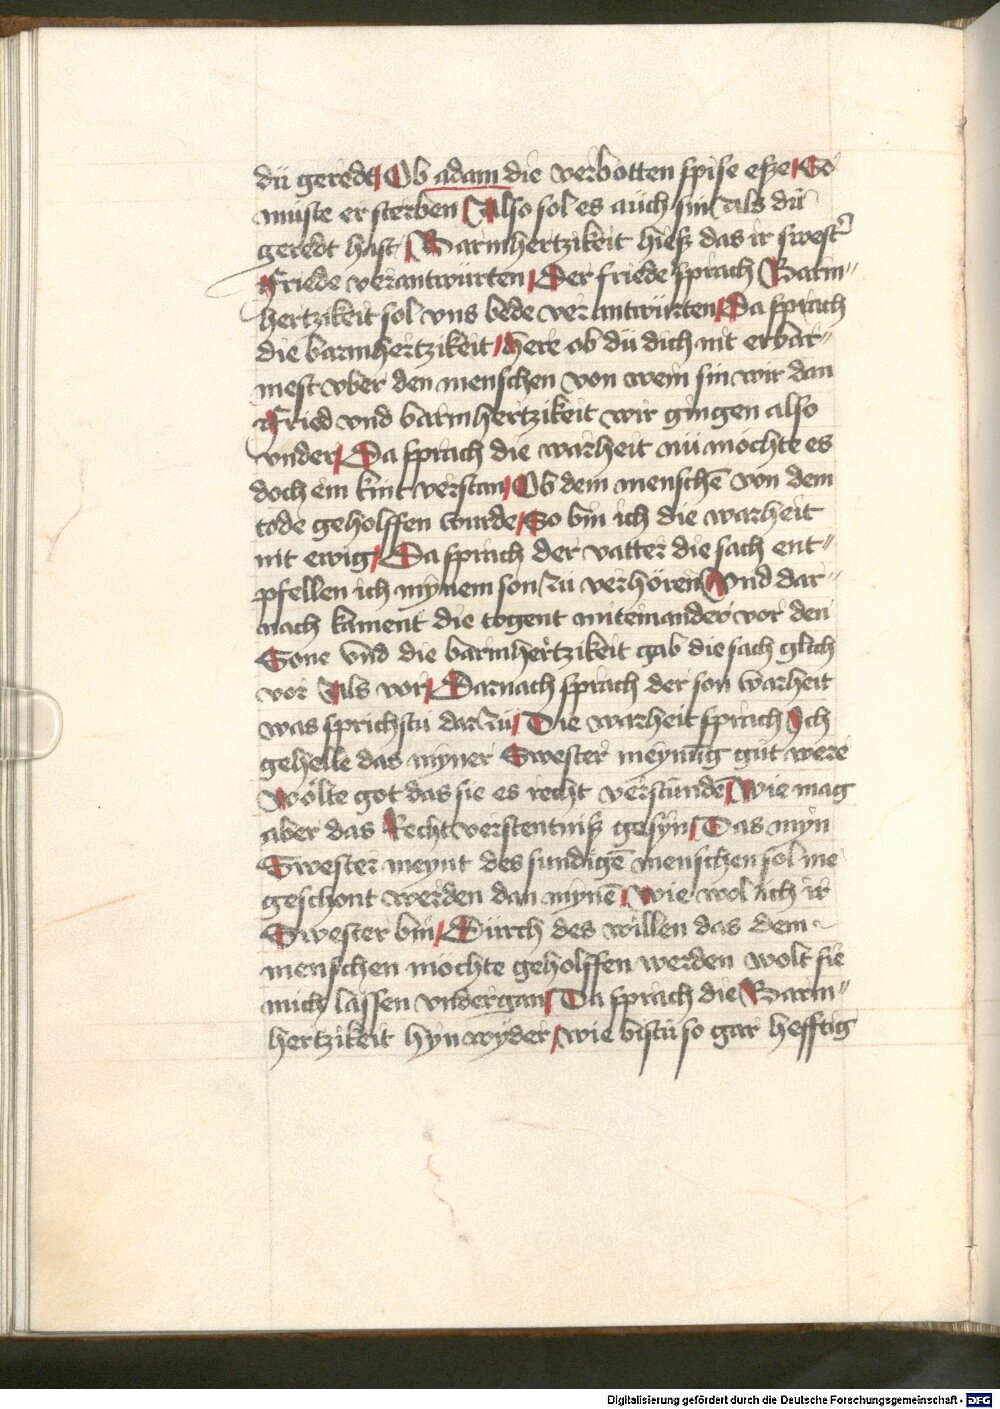 dü geredt / Ob adam die verbotten spise esze / So
müste er sterben / Also sol es aüch sin Als dü
geredt hast / Barmhertzikeit hiesz das ir swest͛
Friede verantwürten / Der friede sprach Barm〃
hertzikeit sol vns bede verantwürten / Da sprach
die barmhertzikeit / here ob dü dich nit erbar〃
mest vber den menschen von wem sin wir dan
Fried vnd barmhertzikeit wir gingen also
vnder / Da sprach die warheit nü möchte es
doch ein kint verstan / Ob dem menschē von dem
tode geholffen wurde / So bin ich die warheit
nit ewig / Da sprach der vatter die sach ent〃
pfellen ich mynem son zü verhören Vnd dar〃
nach kament die togent miteinander vor den
Sone vnd die barmhertzikeit gab die sach glich
vor Als vor / Darnach sprach der son warheit
was sprichstü dar zü / Die warheit sprach Ich
gehelle das myner Swester meynūg güt were
Wölte got das sie es recht verstündē / Wie mag
aber das Recht verstentnisz gesÿn / Das mÿn
Swester meynt des sundigē menschen sol me
geschont werden dan mynē / Wie wol ich ir
Swester bin / Dürch des willen das dem
menschen möchte geholffen werden wolt sie
mich lassen vndergan / Da sprach die Barm〃
hertzikeit hyn wyder / wie bistü so gar hefftig
Digitalisierung gefördert durch die Deutsche Forschungsgemeinschaft - DFG